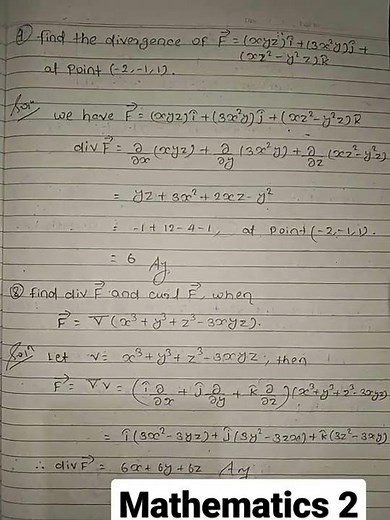 ① find the divergence of F⃗ = (xyz)î + (3x²y)ĵ +
(xz² - y²z)k̂
at point (-2,-1,1).
Soln we have F⃗ = (xyz)î + (3x²y)ĵ + (xz² - y²z)k̂
div F⃗ = ∂/∂x (xyz) + ∂/∂y (3x²y) + ∂/∂z (xz² - y²z)
= yz + 3x² + 2xz - y²
= -1 + 12 - 4 - 1, at point (-2,-1,1).
= 6 Ans
② find div F⃗ and curl F⃗, when
F⃗ = ∇(x³ + y³ + z³ - 3xyz).
Soln Let v = x³ + y³ + z³ - 3xyz, then
F⃗ = ∇v = (î ∂/∂x + ĵ ∂/∂y + k̂ ∂/∂z)(x³ + y³ + z³ - 3xyz)
= î(3x² - 3yz) + ĵ(3y² - 3zx) + k̂(3z² - 3xy)
∴ div F⃗ = 6x + 6y + 6z Ans
Mathematics 2